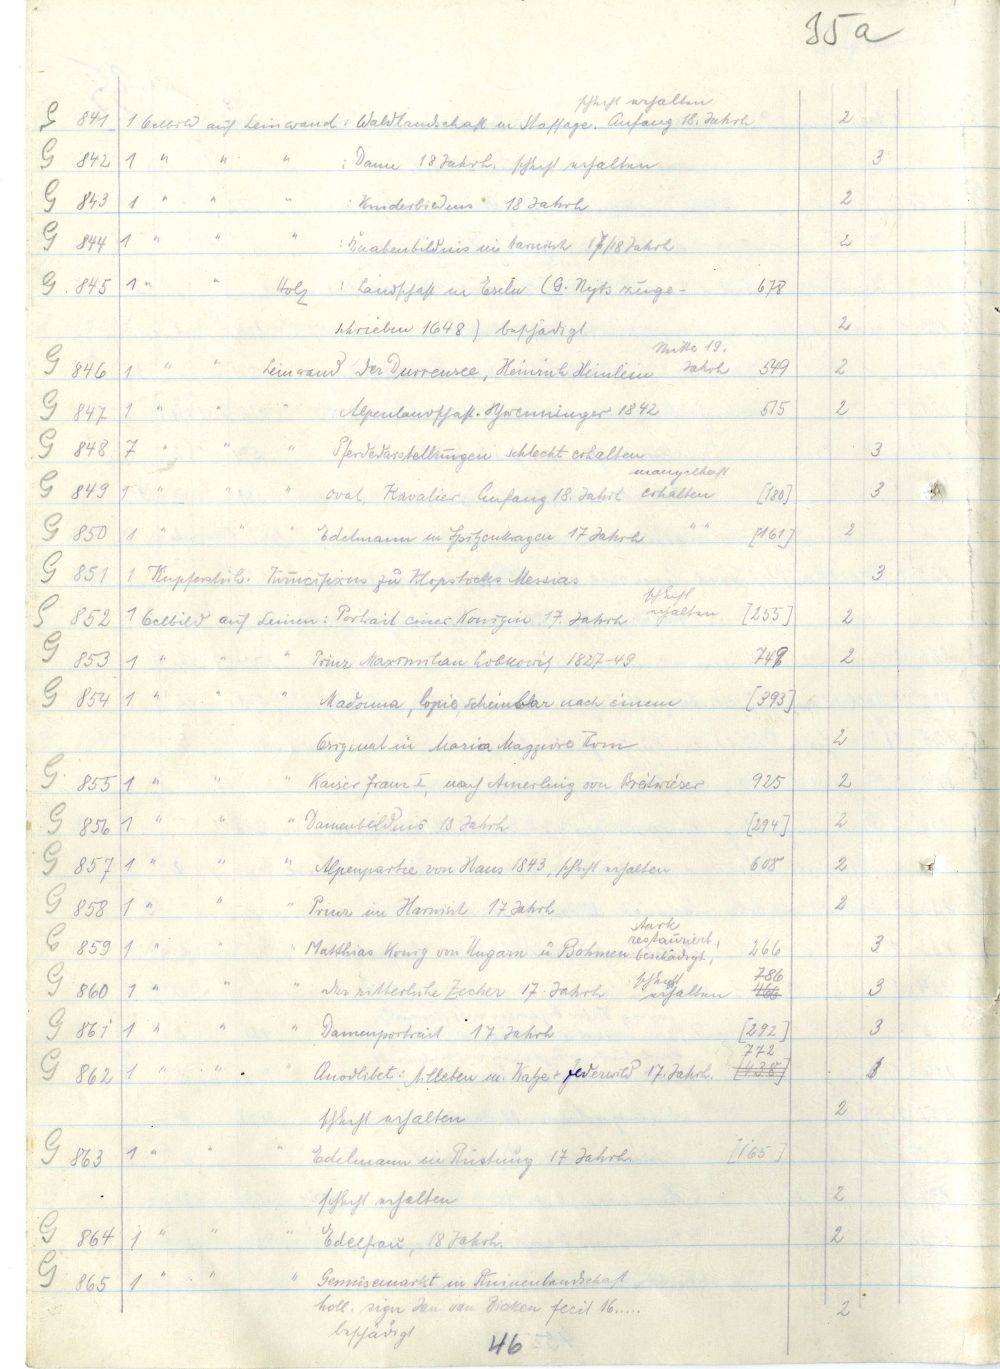 35a
G 841 1 Oelbild auf Leinwand: Waldlandschaft m Staffage. Anfang 18. Jahrh schlecht erhalten 2
G 842 1 " " " : Dame 18 Jahrh. schlecht erhalten 3
G 843 1 " " " : Kinderbildnis 18 Jahrh 2
G 844 1 " " " : Knabenbildnis im Harnisch 17/18 Jahrh 2
G. 845 1 " " Holz : Landschaft m Eseln (G. Nyts zuge- 678
schrieben 1648) beschädigt 2
G 846 1 " " Leinwand Der Durrensee, Heinrich Heinlein Mitte 19. Jahrh 549 2
G 847 1 " " " Alpenlandschaft. Schwenninger 1842 515 2
G 848 7 " " " Pferdedarstellungen schlecht erhalten 3
G 849 1 " " " oval, Kavalier, Anfang 18. Jahrh mangelhaft erhalten [180] 3
G 850 1 " " " Edelmann m Spitzenkragen 17 Jahrh " " [161] 2
G 851 1 Kupferstich. zu Klopstocks Messias 3
G 852 1 Oelbild auf Leinen: Portrait einer Königin 17. Jahrh schlecht erhalten [255] 2
G 853 1 " " " Prinz Maximilian Lobkowitz 1827-49 749 2
G 854 1 " " " Madonna, Copie scheinbar nach einem [393]
Original in Maria Maggiore Rom 2
G 855 1 " " " Kaiser Franz I, nach Amerling von 925 2
G 856 1 " " " Damenbildnis 18 Jahrh [294] 2
G 857 1 " " " Alpenpartie von Haus 1843, schlecht erhalten 608 2
G 858 1 " " " Prinz im Harnisch 17 Jahrh 2
G 859 1 " " " Matthias König von Ungarn u Böhmen stark restauriert, beschädigt, 266 3
G 860 1 " " " Der ritterliche Zecher 17. Jahrh schlecht erhalten 786 466 3
G 861 1 " " " Damenportrait 17 Jahrh [292] 3
G 862 1 " " " Quodlibet: Stilleben m. Katze + Federwild 17. Jahrh. 772 [438]
schlecht erhalten 2
G 863 1 " " " Edelmann in Rüstung 17 Jahrh. [165]
schlecht erhalten 2
G 864 1 " " " Edelfrau, 18 Jahrh. 2
G 865 1 " " " Gemüsemarkt in Ruinenlandschaft
holl. sign Jan van fecit 16..... 2
beschädigt
46